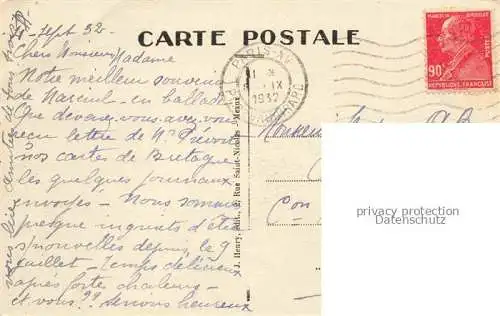 Sept 32
CARTE POSTALE
Chers Monsieur Madame
Notre meilleur souvenir
de Nareuil - en ballade
Que devenez-vous, avez-vous
reçu lettre de Mr
nos cartes de Bretagne
les quelques journaux
envoyés - Nous sommes
presque inquiets d'être
s/nouvelles depuis le 9
juillet - Temps délicieux
après forte chaleur -
et vous ?? serions heureux
vous lire Amitiés de tous trois
J. Henry, édit., 2, Rue Saint-Nicolas - Meaux
PARIS-XV
IX
1932
90c
REPUBLIQUE FRANÇAISE
Monsieur
privacy protection
Datenschutz